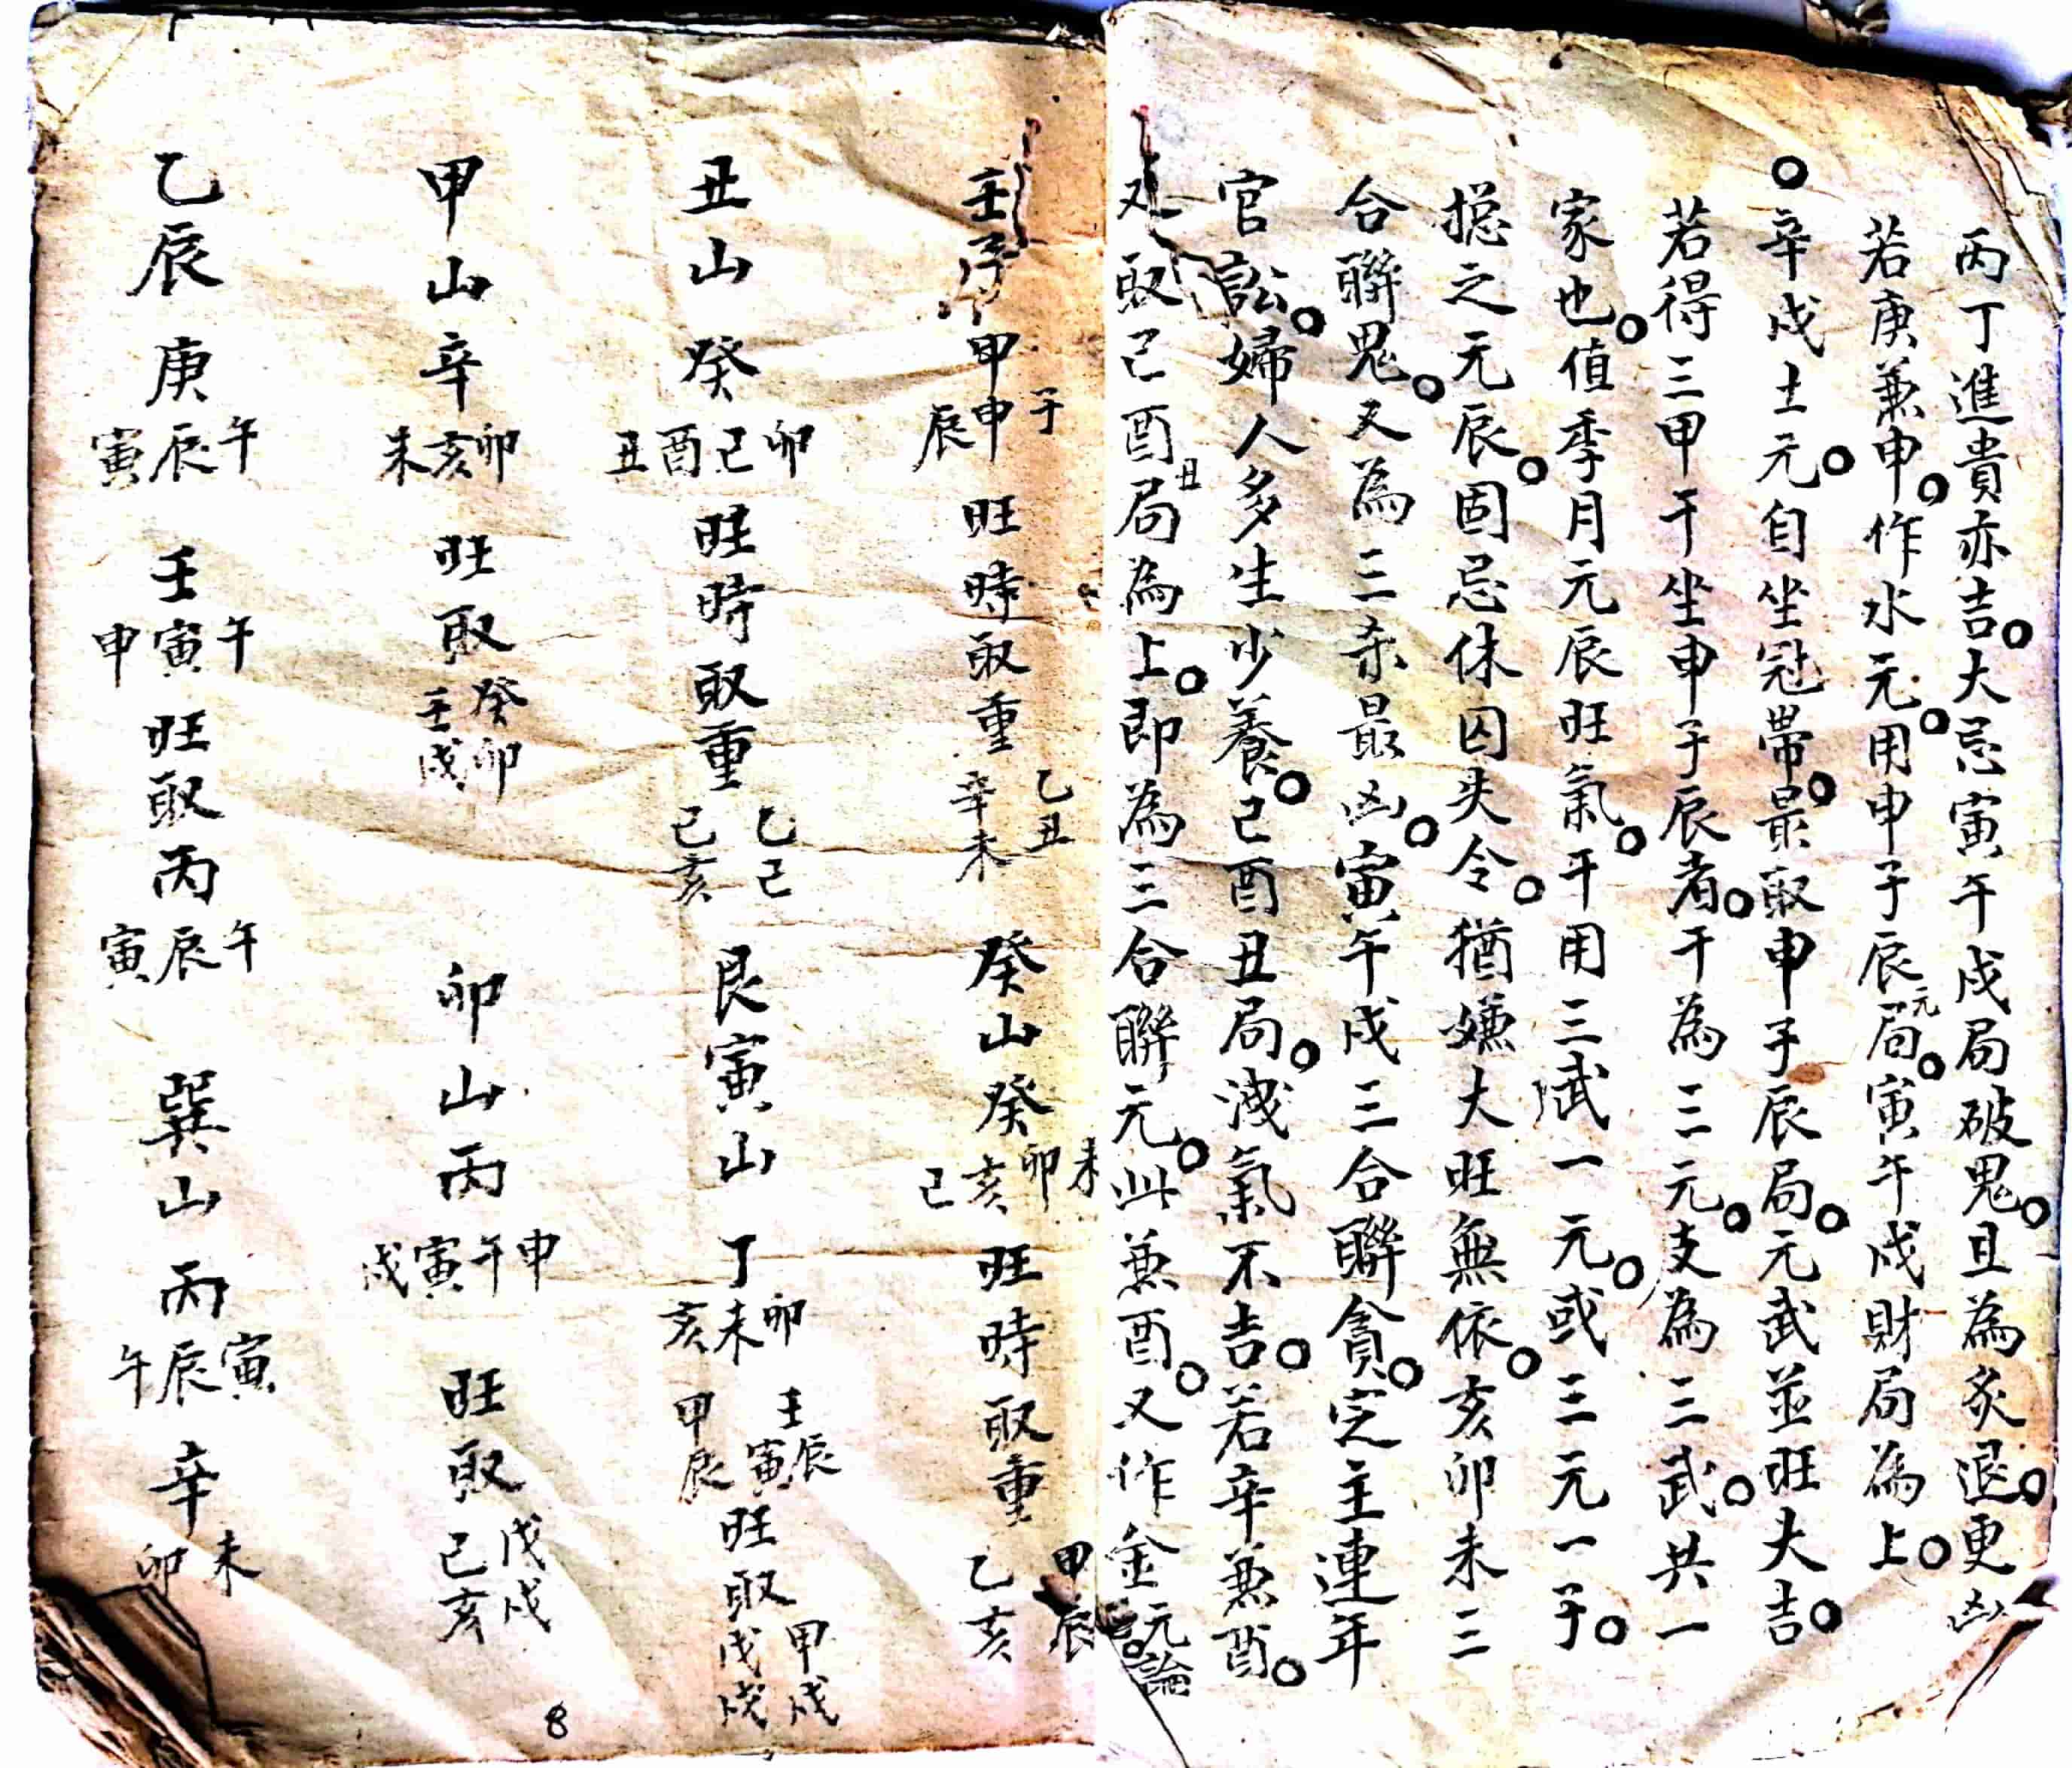 丙丁進貴亦吉。大忌寅午戌局破鬼。且為炙退。更凶
若庚兼申。作水元。用申子辰元局。寅午戌財局為上。
○辛戌土元。自坐冠帶。最取申子辰局。元武並旺大吉。
若得三甲干坐申子辰者。干為三元。支為三武。共一
家也。值季月元辰旺氣。干用三武一元。或三元一子。
揔之元辰。固忌休囚失令。猶嫌大旺無依。亥卯未三
合聯鬼。又為三杀最凶。寅午戌三合聯貪。定主連年
官訟。婦人多生少養。己酉丑局。洩氣不吉。若辛兼酉。
又取己酉丑局為上。即為三合聯元。此兼酉。又作金元論
壬子甲子申辰旺時取重乙丑辛未 癸山癸未卯亥己旺時取重甲辰乙亥
丑山癸卯己酉丑旺時取重乙己己亥 艮寅山丁卯未亥壬辰寅甲辰旺取甲戌戊戌
甲山辛卯亥未旺取癸卯壬戌 卯山丙申午寅戌旺取戊戌己亥
乙辰庚午辰寅壬午寅申旺取丙午辰寅 巽山丙寅辰午辛未卯
8